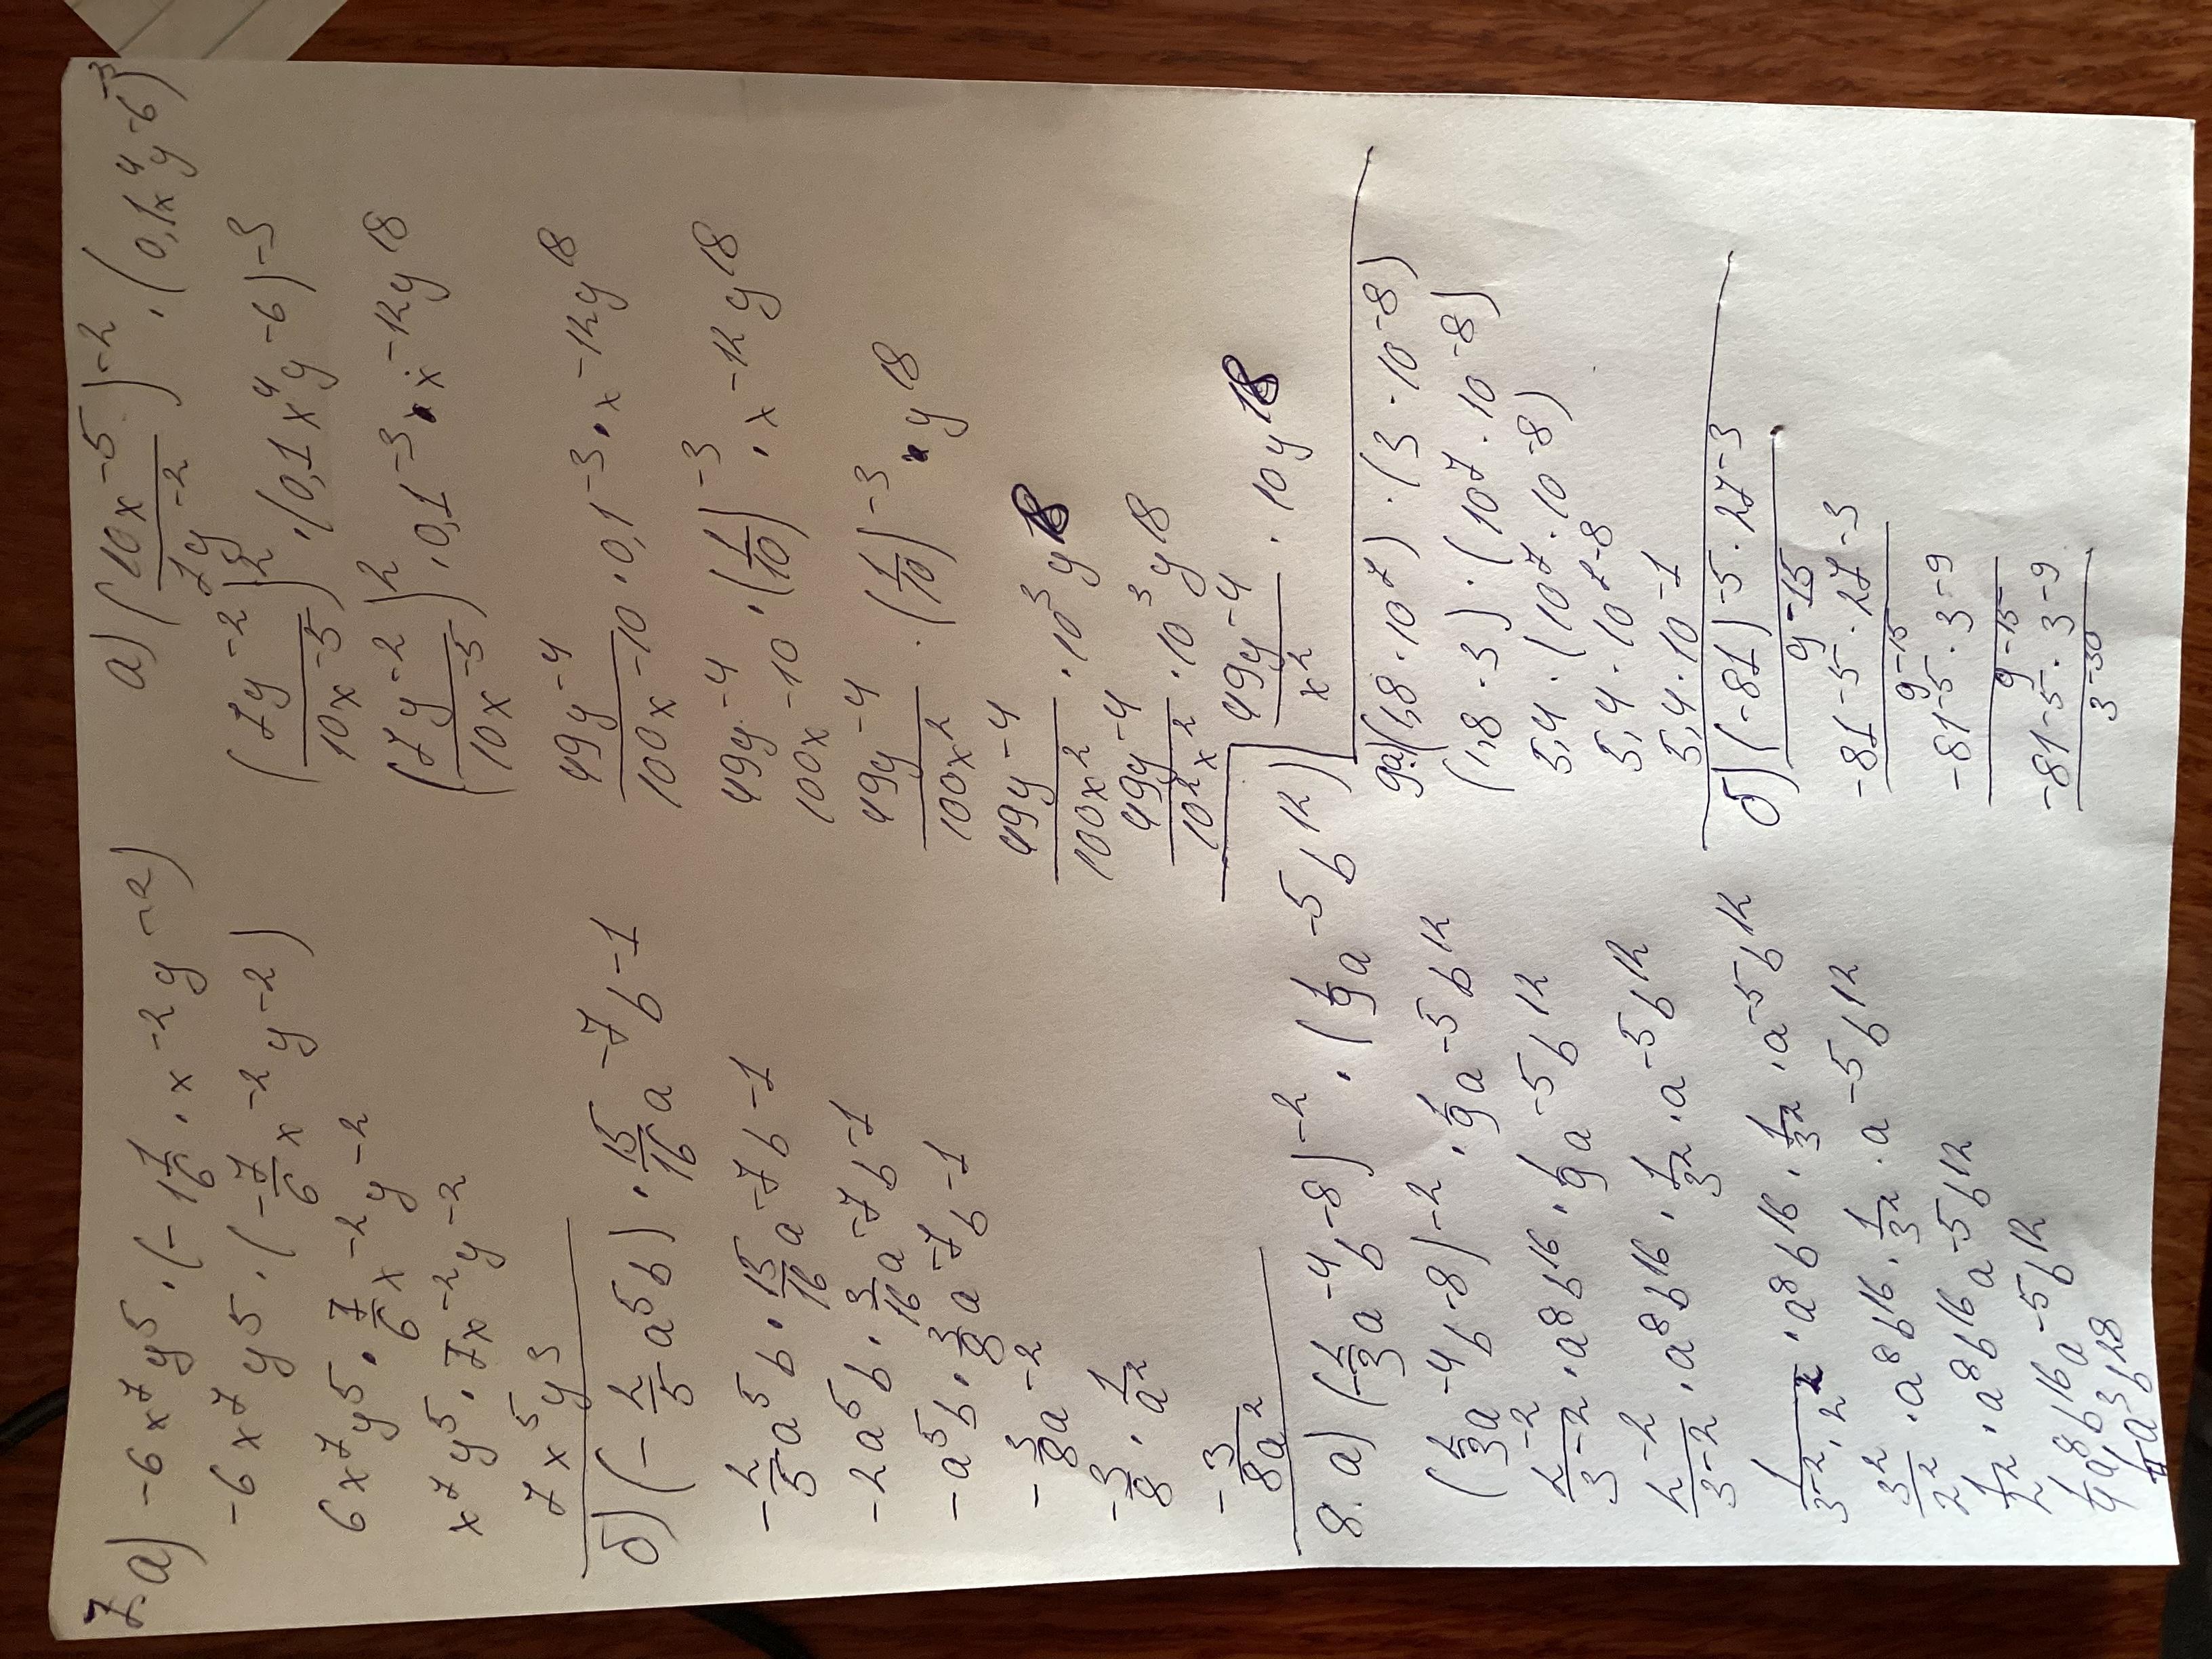 7.a) -6x⁷y⁵·(-1 1/6·x⁻²y⁻²)
-6x⁷y⁵·(-7/6x⁻²y⁻²)
6x⁷y⁵·7/6x⁻²y⁻²
x⁷y⁵·7x⁻²y⁻²
7x⁵y³
б) (-2/5a⁵b)·15/16a⁻⁷b-1
-2/5a⁵b·15/16a⁻⁷b-1
-2a⁵b·3/16a⁻⁷b⁻¹
-a⁵b·3/8a⁻⁷b-1
-3/8a⁻²
-3/8·1/a²
-3/8a²
8. a) (2/3a⁻⁴b⁻⁸)⁻²·(1/9a⁻⁵b¹²)
(2/3a⁻⁴b⁻⁸)⁻²·1/9a⁻⁵b¹²
2⁻²/3⁻²·a⁸b¹⁶·1/9a⁻⁵b¹²
2⁻²/3⁻²·a⁸b¹⁶·1/3²·a⁻⁵b¹²
1/3⁻²·2²·a⁸b¹⁶·1/3²·a⁻⁵b¹²
3²/2²·a⁸b¹⁶·1/3²·a⁻⁵b¹²
1/2²·a⁸b¹⁶a⁻⁵b¹²
1/4a⁸b¹⁶a⁻⁵b¹²
1/4a³b²⁸
a) (10x⁻⁵/7y⁻²)⁻²·(0,1x⁴y⁻⁶)⁻³
(7y⁻²/10x⁻⁵)²·(0,1x⁴y⁻⁶)-3
(7y⁻²/10x⁻⁵)²·0,1⁻³·x⁻¹²y¹⁸
49y⁻⁴/100x⁻¹⁰·0,1⁻³·x⁻¹²y¹⁸
49y⁻⁴/100x⁻¹⁰·(1/10)⁻³·x⁻¹²y¹⁸
49y⁻⁴/100x²·(1/10)⁻³·y¹⁸
49y⁻⁴/100x²·10³y¹⁸
49y⁻⁴/10²x²·10³y¹⁸
49y⁻⁴/x²·10y¹⁸
9a)(1,8·10⁷)·(3·10⁻⁸)
(1,8·3)·(10⁷·10⁻⁸)
5,4·(10⁷·10⁻⁸)
5,4·10⁷⁻⁸
5,4·10⁻¹
б) (-81)-5·27-3/9-15
-81-5·27-3/9-15
-81-5·3-9/9-15
-81-5·3-9/3-30